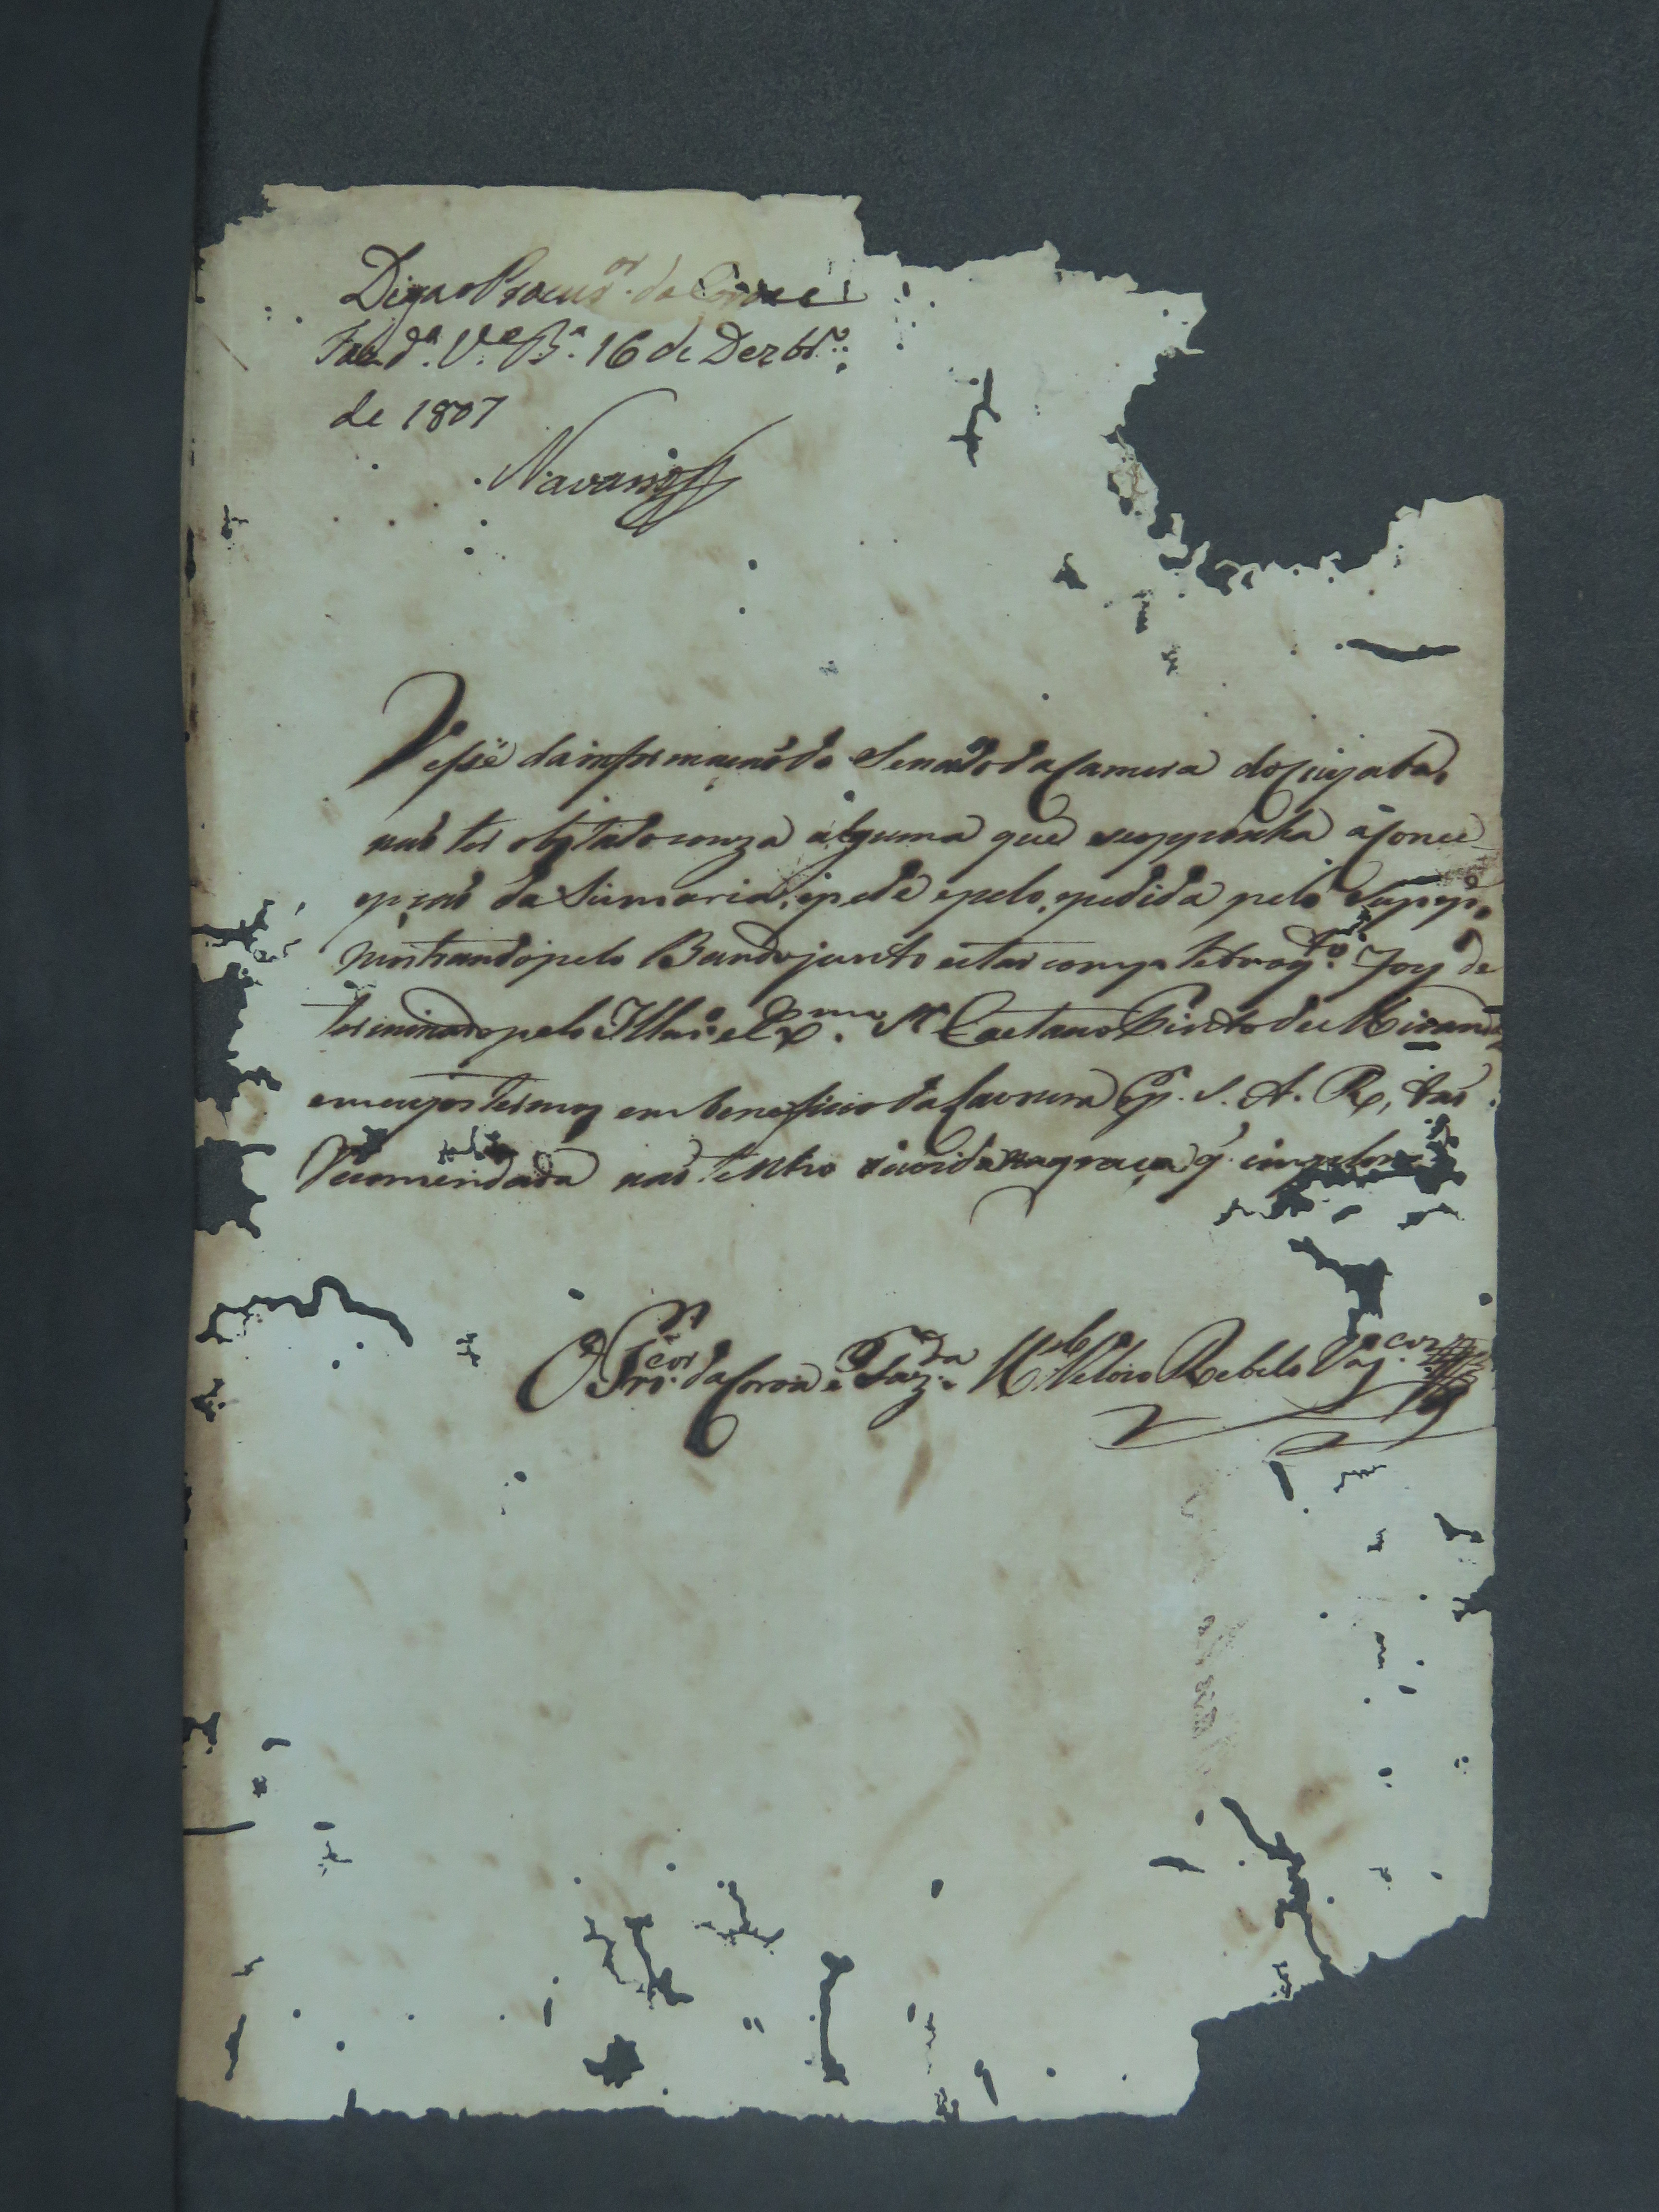 Diga o Procur.or da Coroa e
Faz.da V.a B.a 16 de Dezbr.o
de 1807
Navarro
Vesse da informação do Senado da Camera do Cuyaba,
não ter obstado couza alguma que se opponha á conce
pção da Sismaria, pedida pelo Supp.e
mostrando pelo Bando junto estar
terminado pelo Illmo. e Exmo. Sr. Caetano Pinto de Miranda
em cujos termos em beneficio da Lavoura q. S. A. R. tão
Recomendada não tenho duvida na graça q' implora
O Pro.cor da Coroa e Faz.da M.el Veloso Rebelo Vas.cos